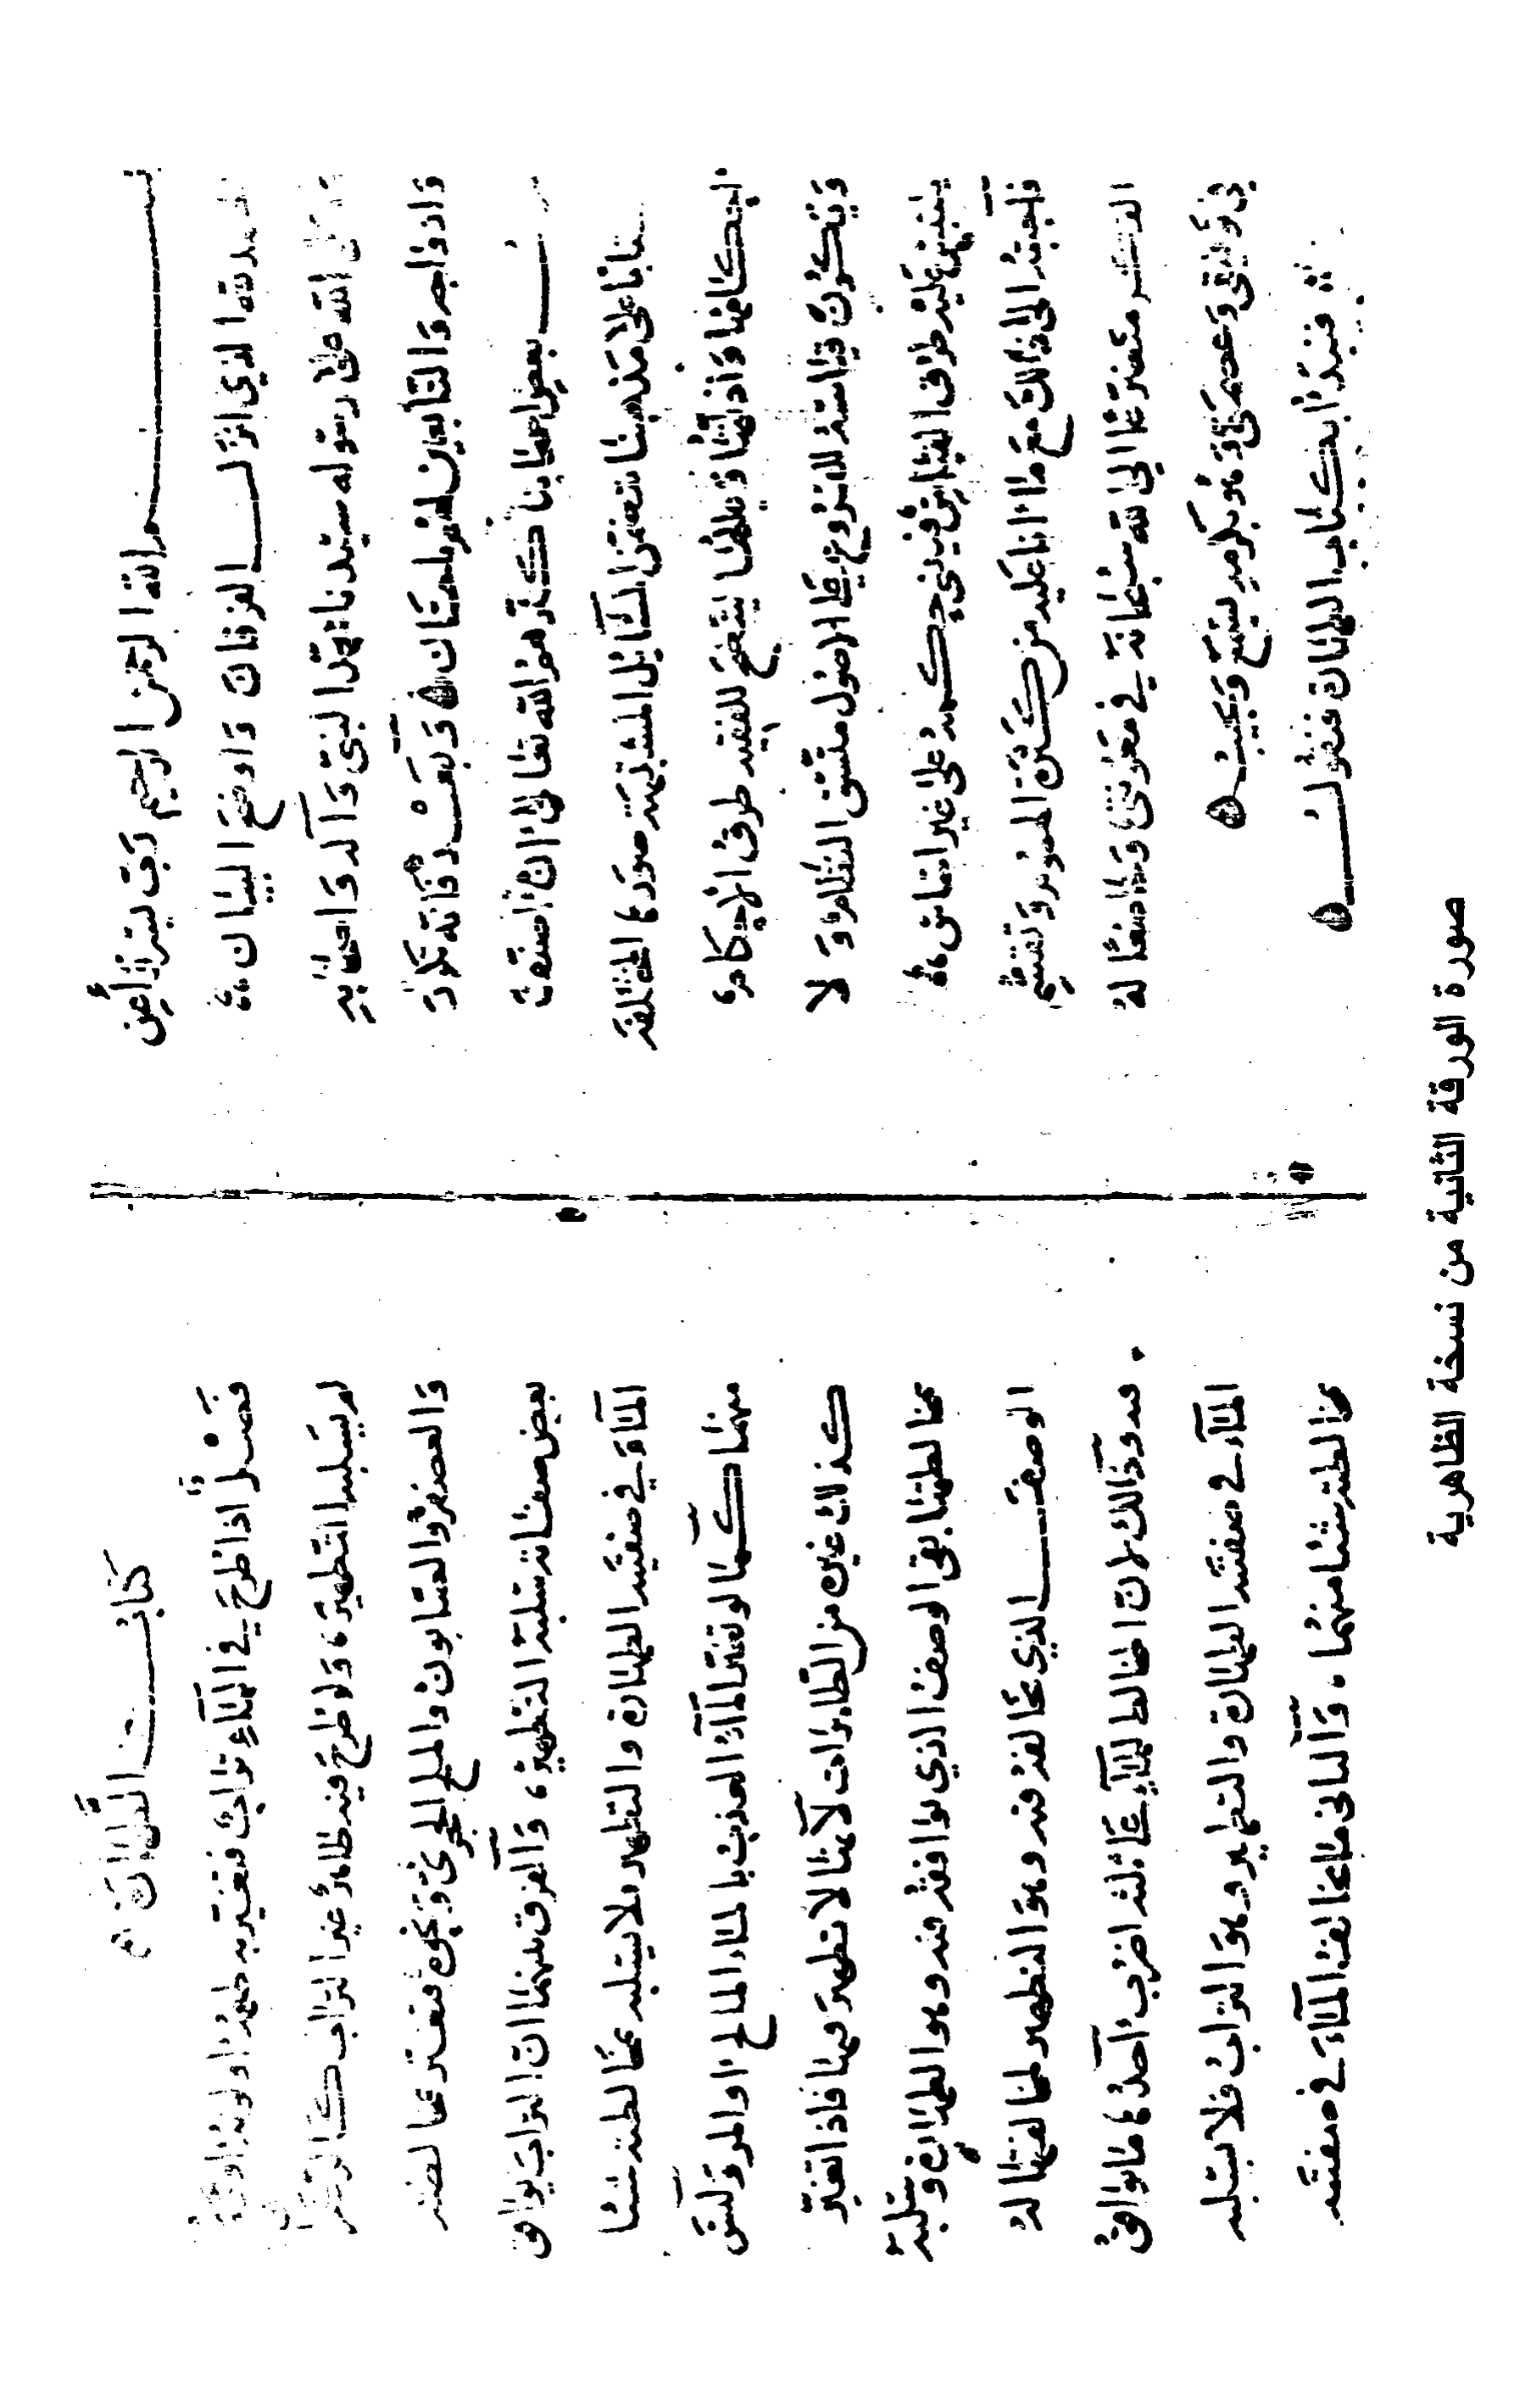 بســـــم الله الرحمن الرحيم رب يسر واعن
الحمد لله الذي انزل الفرقان واوضح البيان
وصلى الله على رسوله سيدنا محمد النبي وآله واصحابه
وازواجه والتابعين لهم باحسان وبعد فانه تكرر
بعض اصحابنا كثرهم الله تعالى ان اصنف
كتابا على مذهبنا تتضمن المسائل المشتبهة صورها المختلفة
احكامها وادلتها وعللها ليتضح للفقيه طرق الاحكام
ويكون قياسه للفروع على الاصول متسق النظام ولا
يلتبس عليه طرق القياس فيبني حكمه على غير اساس
فأجبته الى ذلك مع ما انا عليه من كثرة الهموم وتقسيم
الفكر متضرعا الى الله سبحانه في معونتي وخاضعا له
في توفيقي وعصمتي وهو بكرمه يسمع ويجيب
فنبدأ بكتاب الطهارة فنقول
كتاب الطهارة
فصل اذا طرح في الماء تراب فتغير به طعمه او لونه او ريحه
لم يسلبه التطهير ولو طرح فيه طاهر غير التراب كالزعفران
والعصفر والصابون والملح البحري ونحوه فتغير بمخالطته
بعض صفاته سلبه التطهير والفرق بينهما ان التراب يوافق
الماء في صفتيه الطهارة والتطهير فلا يسلبه بمخالطته شيئا
منهما كما لو تغير الماء العذب بالماء المالح او المر وليس
كذلك غيره من الطاهرات لأنها لا تطهر فيها فاذا تغير
بمخالطتها بقي الوصف الذي يوافقه فيه وهو الطهارة وسلبه
الوصف الذي يخالفه فيه وهو التطهير لمخالفتها له
فيه وذلك لان المخالط للماء على ثلاثة اضرب احدها ما يوافق
الماء في صفتيه الطهارة والتطهير وهو التراب فلا يسلبه
بمخالطته شيئا منهما والثاني ما يخالف الماء في صفتيه
صورة الورقة الثانية من نسخة الظاهرية